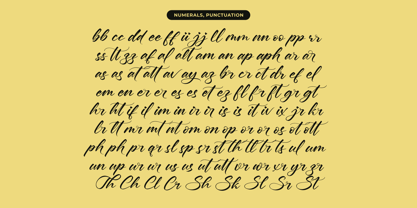 NUMERALS, PUNCTUATION
bb cc dd ee ff ii jj ll mm nn oo pp rr
ss tt zz af al alt am an ap aph ar ar
as as at att av ay az br cr ct dr ef el
em en er er es es et ez fl fr ft gr gt
hr ht if il im in ir ir is it iv ix jr kr
lr lt mr mt nt om on op or or os ot ott
ph ph pr qr sl sp sr st th tl tr ts ul um
un up ur ur us us ut utt vr wr xr yr zr
Th Ch Cl Cr Sh Sk Sl Sr St